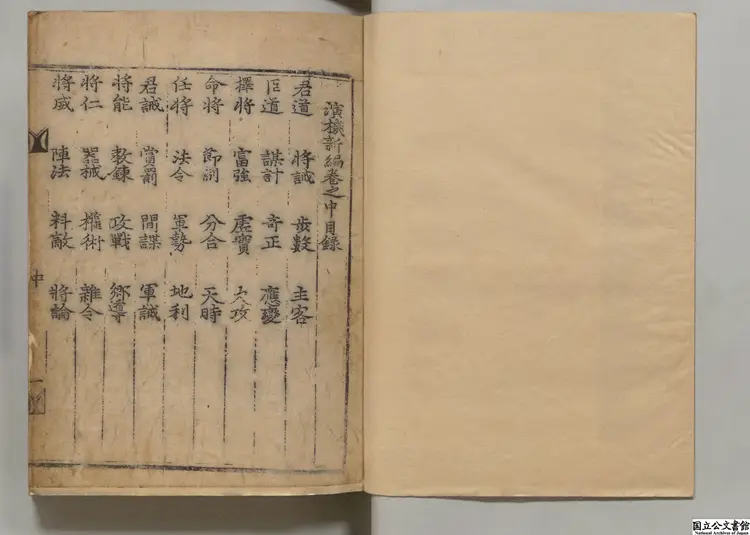 演機新編卷之中目錄
君道 將誡 步數 主客
臣道 謀計 奇正 應變
擇將 富強 虛實 火攻
命將 節制 分合 天時
任將 法令 軍勢 地利
君誡 賞罰 間諜 軍誡
將能 教鍊 攻戰 鄉導
將仁 器械 權術 雜令
將威 陣法 料敵 將論
中 一
国立公文書館
National Archives of Japan